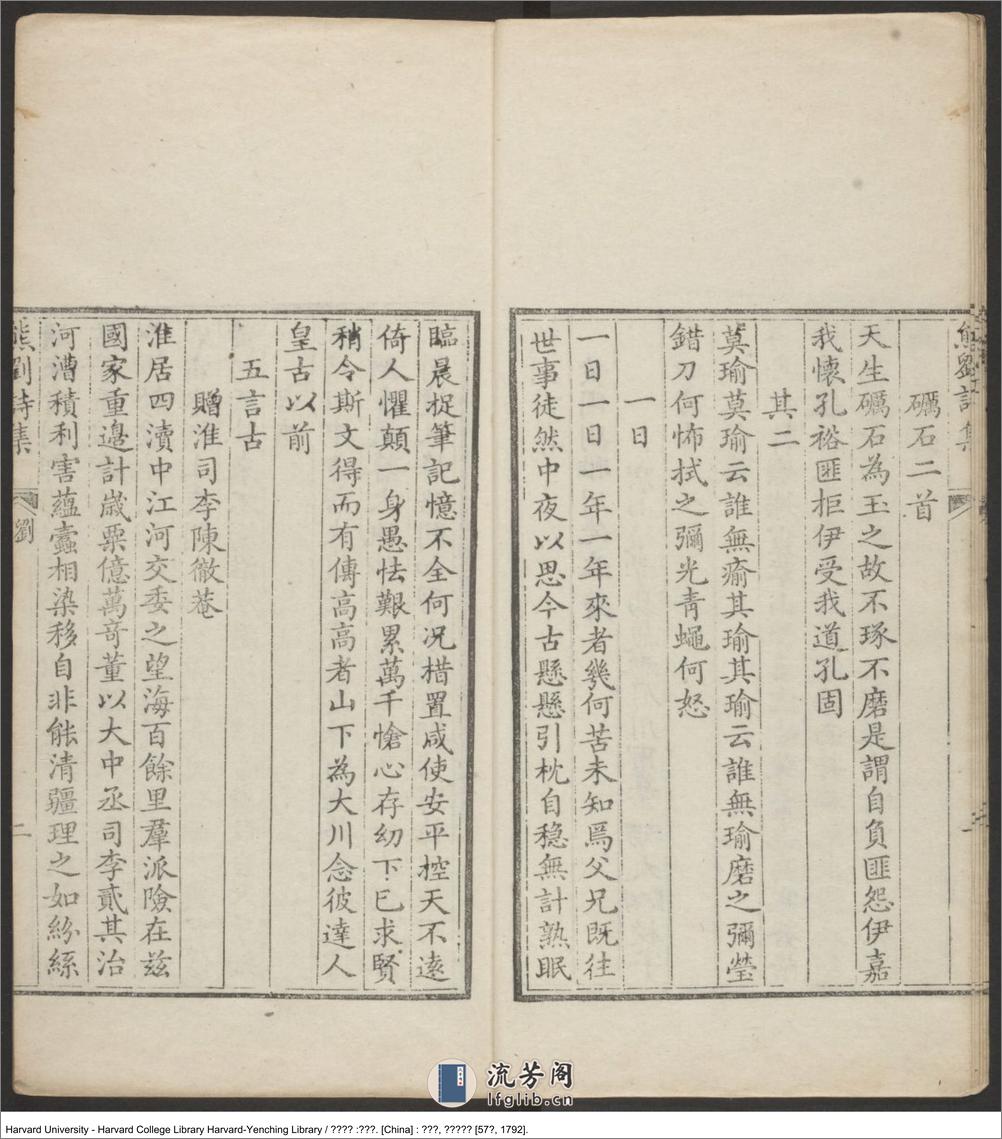 熊劉詩集
礪石二首
天生礪石為玉之故不琢不磨是謂自負匪怨伊嘉
我懷孔裕匪拒伊受我道孔固
其二
莫瑜莫瑜云誰無瘉其瑜其瑜云誰無瑜磨之彌瑩
錯刀何怖拭之彌光青蠅何怒
一日
一日一日一年一年來者幾何苦未知焉父兄既往
世事徒然中夜以思今古懸懸引枕自穩無計熟眠
臨晨捉筆記憶不全何況措置咸使安平控天不遠
倚人懼顛一身愚怯艱累萬千愴心存幼下已求賢
稍令斯文得而有傳高高者山下為大川念彼達人
皇古以前
五言古
贈淮司李陳徹菴
淮居四瀆中江河交委之望海百餘里羣派險在茲
國家重邊計歲粟億萬竒董以大中丞司李貳其治
河漕積利害蘊蠹相染移自非能清疆理之如紛絲
熊劉詩集
劉
二
流芳阁
lfglib.cn
Harvard University - Harvard College Library Harvard-Yenching Library / ???? :???. [China] : ???, ????? [57?, 1792].